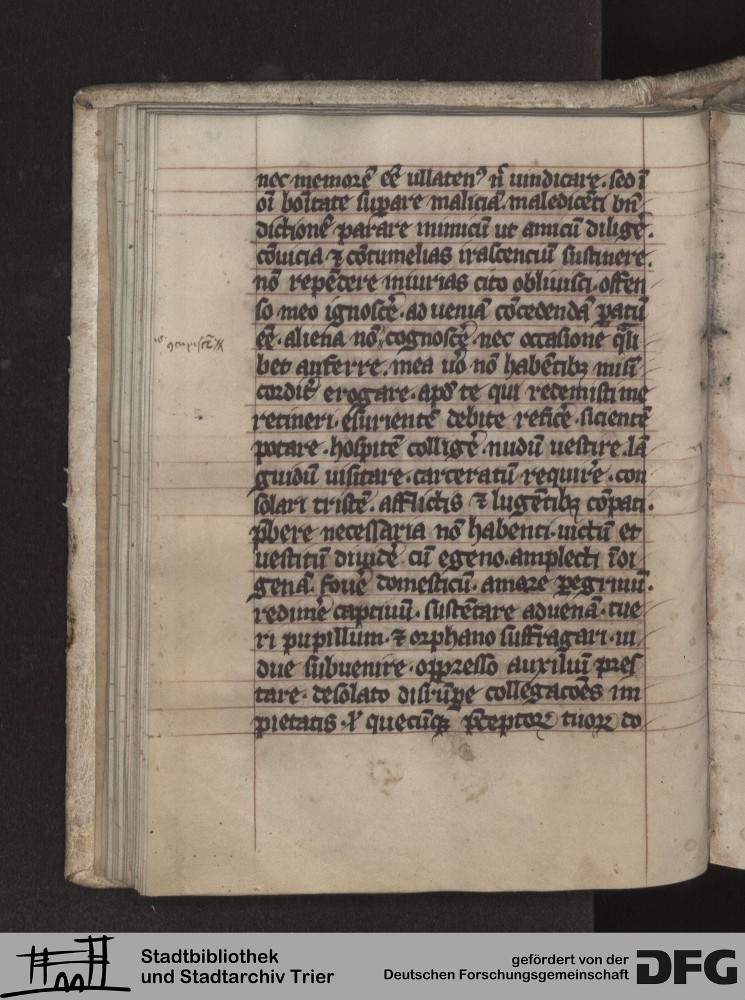 nec memorē eē̄ ullatenꝰ nͥ uindicare. sed ī
oī bonitate supare maliciā. maledicēti bn̄
dictionē parare inimicū ut amicū diligē.
cōuicia ⁊ cōtumelias irascenciū sustinere.
nō repētere iniurias cito obliuisci. offen
so meo ignoscē. ad ueniā cōcedendā paratū
eē. aliena nō cognoscē. nec occasione q̄li
bet auferre. mea uͦo nō habētibꝫ misͥ
cordiē erogare. apd̄ te qui redemisti me
retineri. esurientē debite reficē. sicientē
potare. hospitē colligē. nudū uestire. lā
guidū uisitare. carceratū requirē. con
solari tristē. afflictis ⁊ lugētibꝫ cōpati.
p̄bere necessaria nō habenti. uictū et
uestitū diuidē cū egeno. amplecti īdi
genā. fouē domesticū. amare peregrinū.
redimē captiuū. sustētare aduenā. tue
ri pupillum. ⁊ orphano suffragari. ui
due subuenire. oppresso auxiliū pres
tare. desolato disrūpe collegacōes im
pietatis. lͥ quecūqꝫ p̄ceptoꝝ tuoꝝ do
Stadtbibliothek
und Stadtarchiv Trier
gefördert von der
Deutschen Forschungsgemeinschaft
DFG